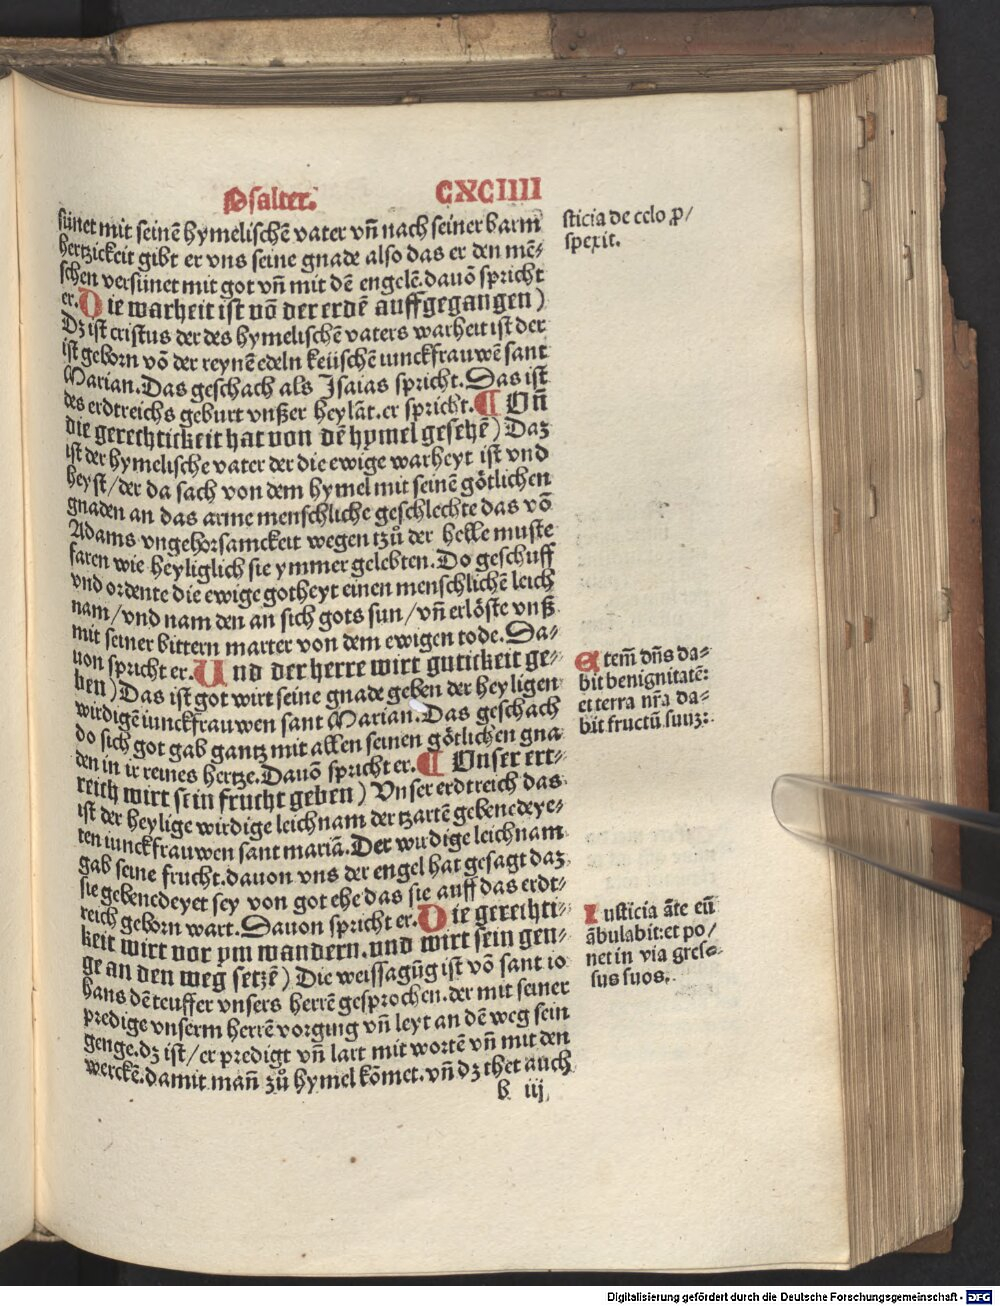 Psalter. CXCIIII
sünet mit seinē hymelischē vater vn̄ nach seiner barm
hertzickeit gibt er vns seine gnade also das er den mē⸗
schen versünet mit got vn̄ mit dē engelē. dauō spricht
er. Die warheit ist vō der erdē auffgegangen)
Dz ist cristus der des hymelischē vaters warheit ist der
ist geborn vō der reynē edeln keüschē iunckfrauwē sant
Marian. Das geschach als Isaias spricht. Das ist
des erdtreichs geburt vnßer heylāt. er spricht. ¶ Vn̄
die gerechtickeit hat von dē hymel gesehē) Daz
ist der hymelische vater der die ewige warheyt ist vnd
heyst/der da sach von dem hymel mit seinē götlichen
gnaden an das arme menschliche geschlechte das vō
Adams vngehorsamckeit wegen tzů der helle muste
faren wie heyliglich sie ymmer gelebten. Do geschuff
vnd ordente die ewige gotheyt einen menschlichē leich
nam/vnd nam den an sich gots sun/vn̄ erlöste vnß
mit seiner bittern marter von dem ewigen tode. Da⸗
uon spricht er. Und der herre wirt gutickeit ge⸗
ben) Das ist got wirt seine gnade geben der heyligen
wirdigē iunckfrauwen sant Marian. Das geschach
do sich got gab gantz mit allen seinen götlichen gna
den in ir reines hertze. Dauō spricht er. ¶ Vnser ert⸗
reich wirt sein frucht geben) Vnser erdtreich das
ist der heylige wirdige leichnam der tzartē gebenedeye⸗
ten iunckfrauwen sant mariā. Der wirdige leichnam
gab seine frucht. dauon vns der engel hat gesagt daz
sie gebenedeyet sey von got ehe das sie auff das erdt⸗
reich geborn wart. Dauon spricht er. Die gerechti⸗
keit wirt vor ym wandern. vnd wirt sein gen⸗
ge an den weg setzē) Die weissagūg ist vō sant io
hans dē teuffer vnsers herrē gesprochen. der mit seiner
predige vnserm herrē vorging vn̄ leyt an dē weg sein
genge. dz ist/er predigt vn̄ lart mit wortē vn̄ mit den
werckē. damit man̄ zů hymel kōmet. vn̄ dz thet auch
b iij
sticia de celo ꝓ/
spexit.
Etem̄ dn̄s da⸗
bit benignitatē:
et terra nr̄a da⸗
bit fructū suuꝫ:
Iusticia āte eū
ābulabit: et po/
net in via gres⸗
sus suos.
Digitalisierung gefördert durch die Deutsche Forschungsgemeinschaft - DFG